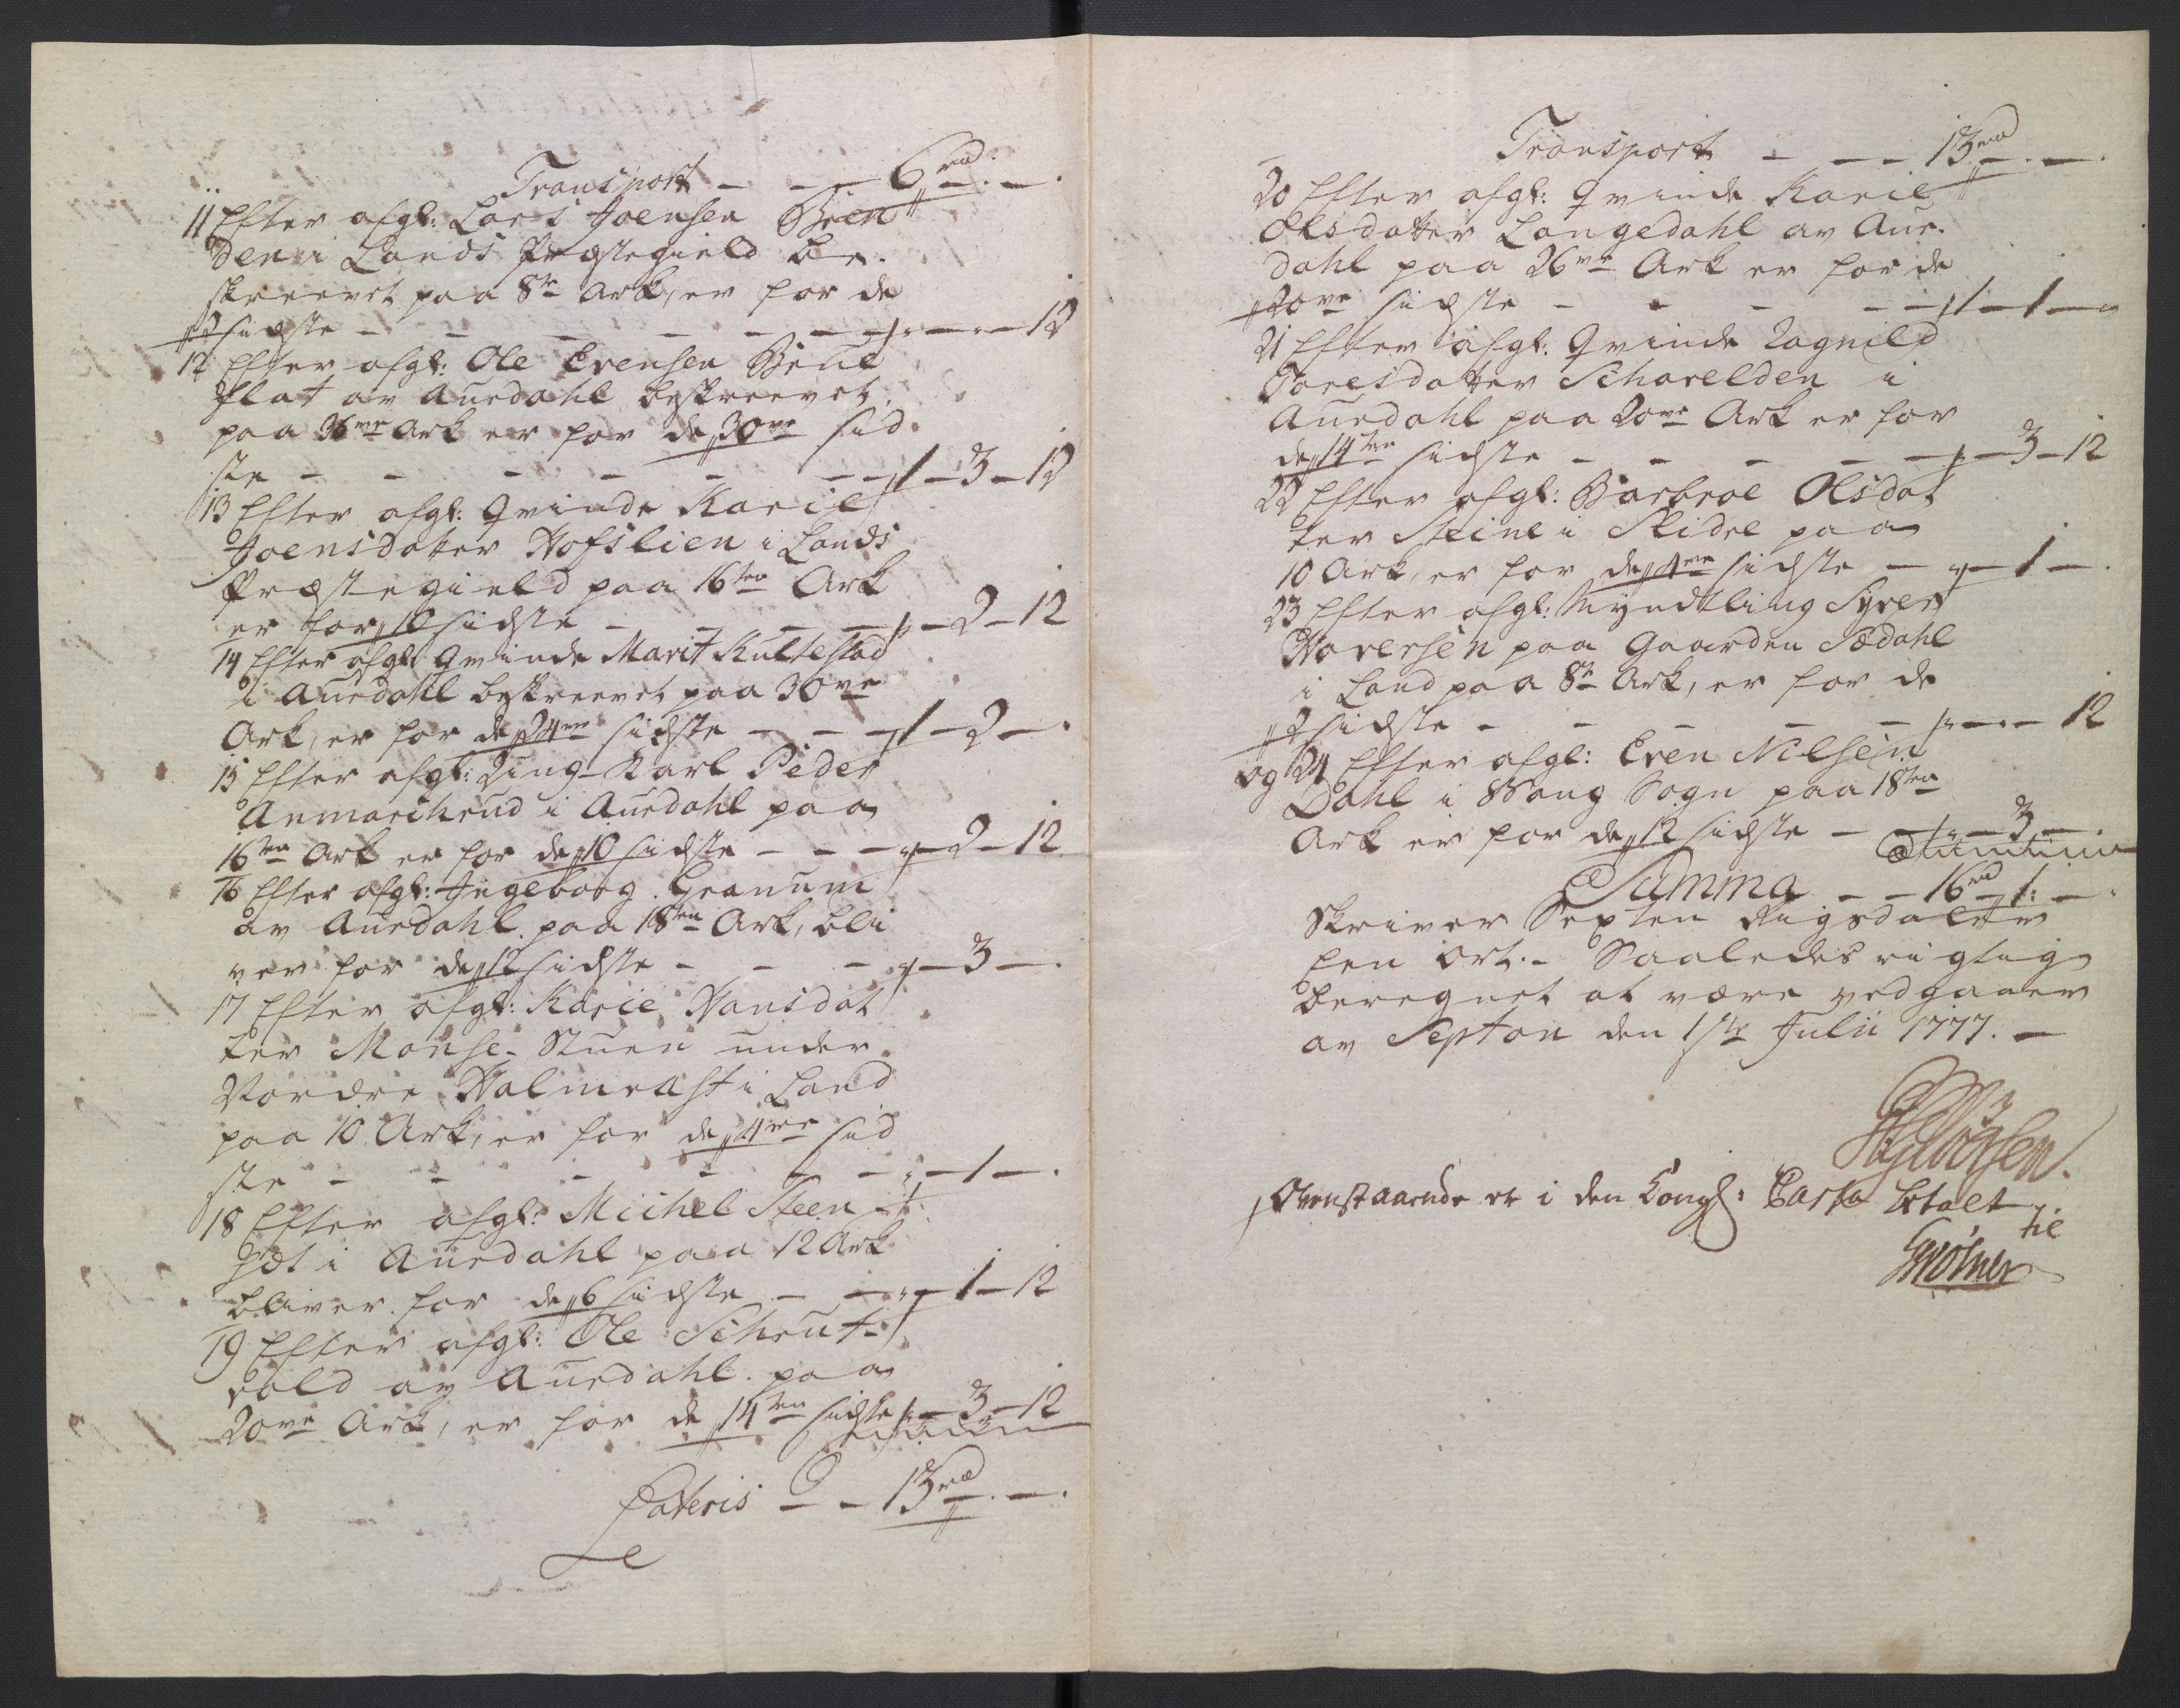 Transport - - - 6 rd - . - .
11 Efter afgl: Lars Joensen Bren
den i Lands Præstegield be-
skreevet paa 8te Ark, er for de
2 sidste - - - - - - - - 12
12 Efter afgl: Ole Evensen Brue
flat av Aurdahl beskreevet
paa 36ve Ark er for de 30ve sid
ste - - - - - - 1 - 3 - 12
13 Efter afgl: Qvinde Karie
Joensdatter Hofslien i Lands
Præstegield paa 16ten Ark
er for 10 sidste - - - - - 2 - 12
14 Efter afgl: Qvinde Marit Kultestad
i Aurdahl beskreevet paa 30ve
Ark, er for de 24ve sidste - - - 1 - 2 - .
15 Efter afgl: Ung-Karl Peder
Anmarchrud i Aurdahl paa
16ten Ark er for de 10 sidste - - - - 2 - 12
16 Efter afgl: Ingeborg Granum
av Aurdahl paa 18ten Ark, bli
ver for de 12 sidste - - - - 3 - .
17 Efter afgl: Karie Hansdat
ter Monse-Stuen under
Nordre Halmrast i Land
paa 10 Ark, er for de 4re sid
ste - - - - - - - 1 - .
18 Efter afgl: Michel Steen-
sæt i Aurdahl paa 12 Ark
bliver for de 6 sidste - - - 1 - 12
19 Efter afgl: Ole Schrut-
vold av Aurdahl paa
20ve Ark, er for de 14ten sidste - 3 - 12
Lateris - - 13 rd - . - .
Transport - - - 13 rd - . - .
20 Efter afgl: Qvinde Karie
Olsdatter Langedahl av Aur-
dahl paa 26ve Ark er for de
20ve sidste - - - - - 1 - 1 - "
21 Efter afgl: Qvinde Ragnild
Toresdatter Scharelden i
Aurdahl paa 20ve Ark er for
de 14ten sidste - - - - - - 3 - 12
22 Efter afgl: Barbroe Olsdat
ter Steine i Slidre paa
10 Ark, er for de 4re sidste - - 1 - .
23 Efter afgl: Myndtling Syver
Haversen paa Gaarden Sædahl
i Land paa 8te Ark, er for de
2 sidste - - - - - - - - 12
og 24 Efter afgl: Even Nilsen
Dahl i Wang Sogn paa 18ten
Ark er for de 12 sidste - - - 3 - .
Summa - - 16 rd - 1: - .
Skriver Sexten Rigsdaler
Een Ort. - Saaledes rigtig
beregnet at være vedgaaer
av Septon den 1ste Julii 1777. -

Ovenstaaende er i den Kongl: Cassa betalt
til